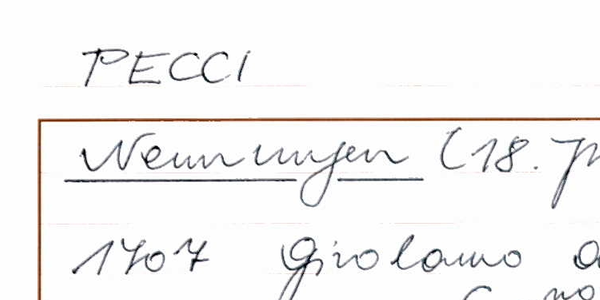 PECCI
Nennungen (18. Jh
1707 Girolamo